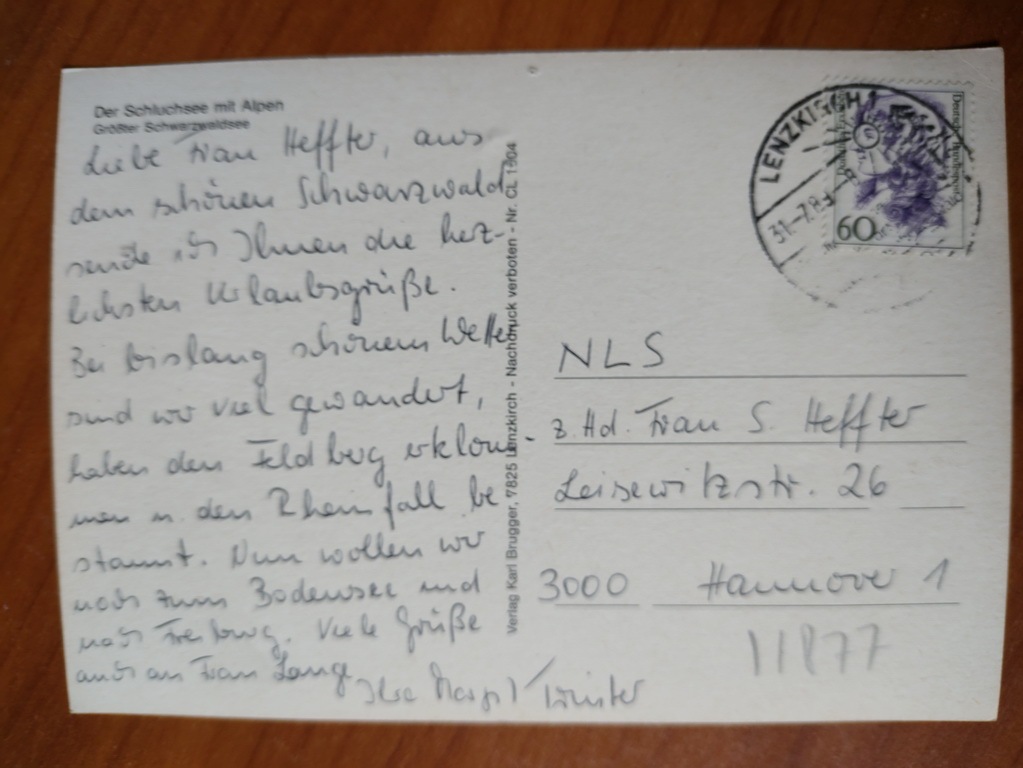 Der Schluchsee mit Alpen
Größter Schwarzwaldsee
Liebe Frau Heffter, aus
dem schönen Schwarzwald
sende ich Ihnen die herz-
lichsten Urlaubsgrüße.
Bei bislang schönem Wetter
sind wir viel gewandert,
haben den Feldberg erklom-
men u. den Rheinfall be
staunt. Nun wollen wir
noch zum Bodensee und
nach Freiburg. Viele Grüße
auch an Frau Lange
Ihre
Verlag Karl Brugger, 7825 Lenzkirch - Nachdruck verboten - Nr. GL 1504
LENZKIRCH 1
31.-7.
60
NLS
z. Hd. Frau S. Heffter
Leisewitzstr. 26
3000 Hannover 1
11877